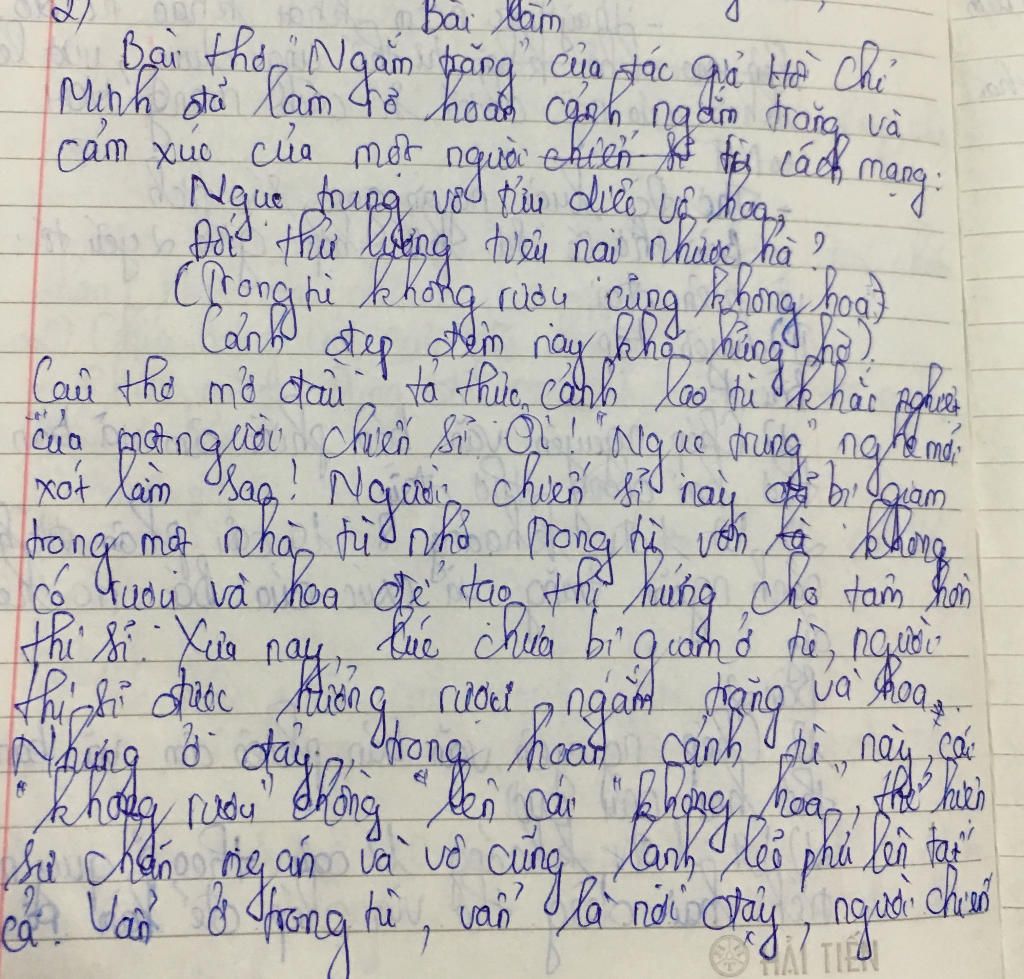 2) Bài làm
Bài thơ "Ngắm trăng" của tác giả Hồ Chí
Minh đã làm rõ hoàn cảnh ngắm trăng và
cảm xúc của một người chiến sĩ tù cách mạng:
Ngục trung vô tửu diệc vô hoa,
Đối thử lương tiêu nại nhược hà?
(Trong tù không rượu cũng không hoa,)
Cảnh đẹp đêm nay khó hững hờ).
Câu thơ mở đầu tả thực cảnh lao tù khắc nghiệt
của một người chiến sĩ. Ôi! "Ngục trung" nghe mới
xót làm sao! Người chiến sĩ này đã bị giam
trong một nhà tù nhỏ. Trong tù vốn là không
có rượu và hoa để tạo thi hứng cho tâm hồn
thi sĩ. Xưa nay, lúc chưa bị giam ở tù, người
thi sĩ được thưởng rượu, ngắm trăng và hoa.
Nhưng ở đây, trong hoàn cảnh tù này, cái
"không rượu" chồng lên cái "không hoa", thể hiện
sự chán ngán và vô cùng lạnh lẽo phủ lên tất
cả. Vẫn ở trong tù, vẫn là nơi đây, người chiến
HẢI TIẾN